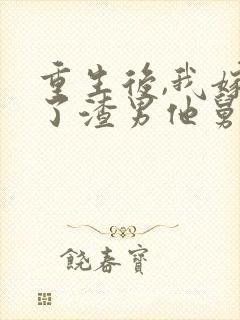 重生後,我嫁
了渣男他舅
饒春寶